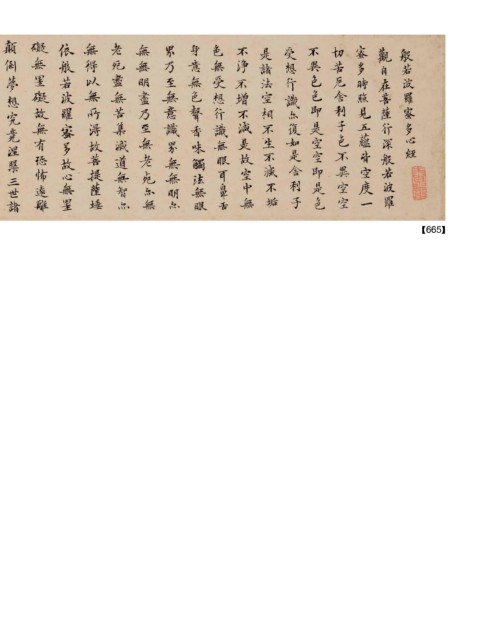 般若波羅蜜多心經
觀自在菩薩行深般若波羅
蜜多時照見五蘊皆空度一
切苦厄舍利子色不異空空
不異色色即是空空即是色
受想行識亦復如是舍利子
是諸法空相不生不滅不垢
不淨不增不減是故空中無
色無受想行識無眼耳鼻舌
身意無色聲香味觸法無眼
界乃至無意識界無無明亦
無無明盡乃至無老死亦無
老死盡無苦集滅道無智亦
無得以無所得故菩提薩埵
依般若波羅蜜多故心無罣
礙無罣礙故無有恐怖遠離
顛倒夢想究竟涅槃三世諸
【665】